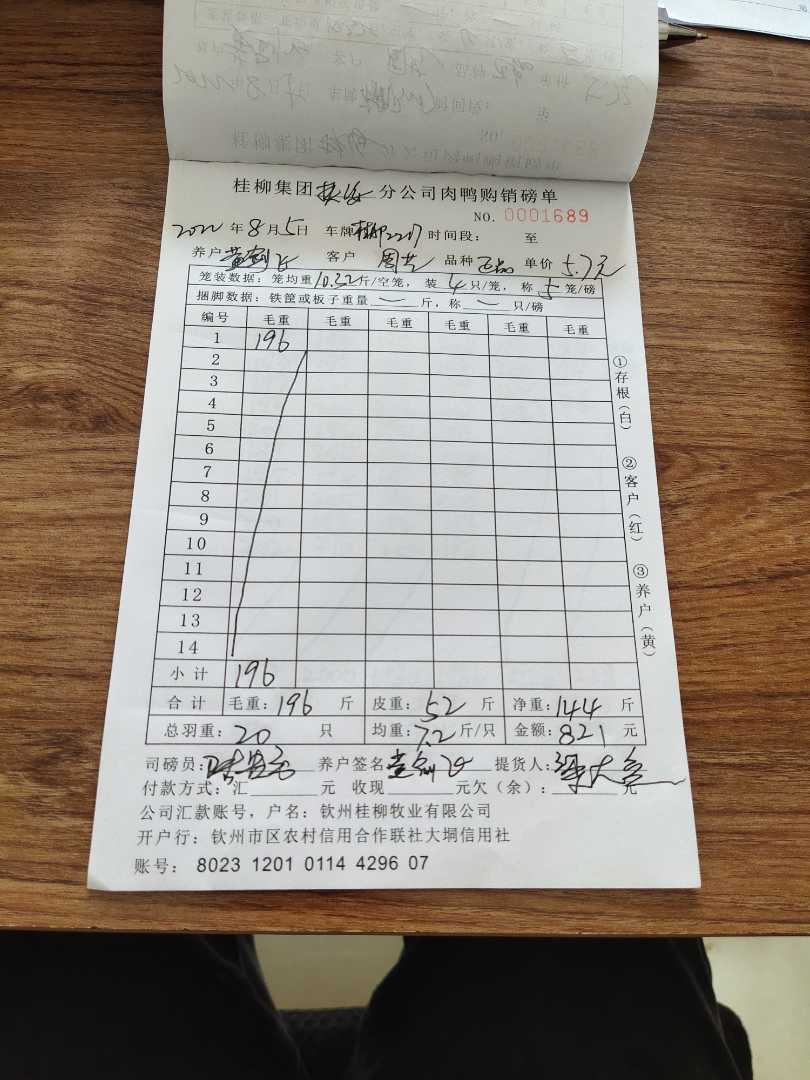 桂柳集团 分公司肉鸭购销磅单
NO. 0001689
2022年8月5日 车牌 2217 时间段： 至
养户 黄 飞 客户 周 品种 正品 单价 5.7元
笼装数据：笼均重10.32斤/空笼，装4只/笼，称5笼/磅
捆脚数据：铁筐或板子重量 斤，称 只/磅
编号 毛重 毛重 毛重 毛重 毛重 毛重
1 196
2
3
4
5
6
7
8
9
10
11
12
13
14
小计 196
合计 毛重：196 斤 皮重：52 斤 净重：144 斤
总羽重：20 只 均重：7.2斤/只 金额：821 元
司磅员： 养户签名 黄 飞 提货人：
付款方式：汇 元 收现 元欠（余）： 元
公司汇款账号，户名：钦州桂柳牧业有限公司
开户行：钦州市区农村信用合作联社大垌信用社
账号：8023 1201 0114 4296 07
①存根（白）
②客户（红）
③养户（黄）